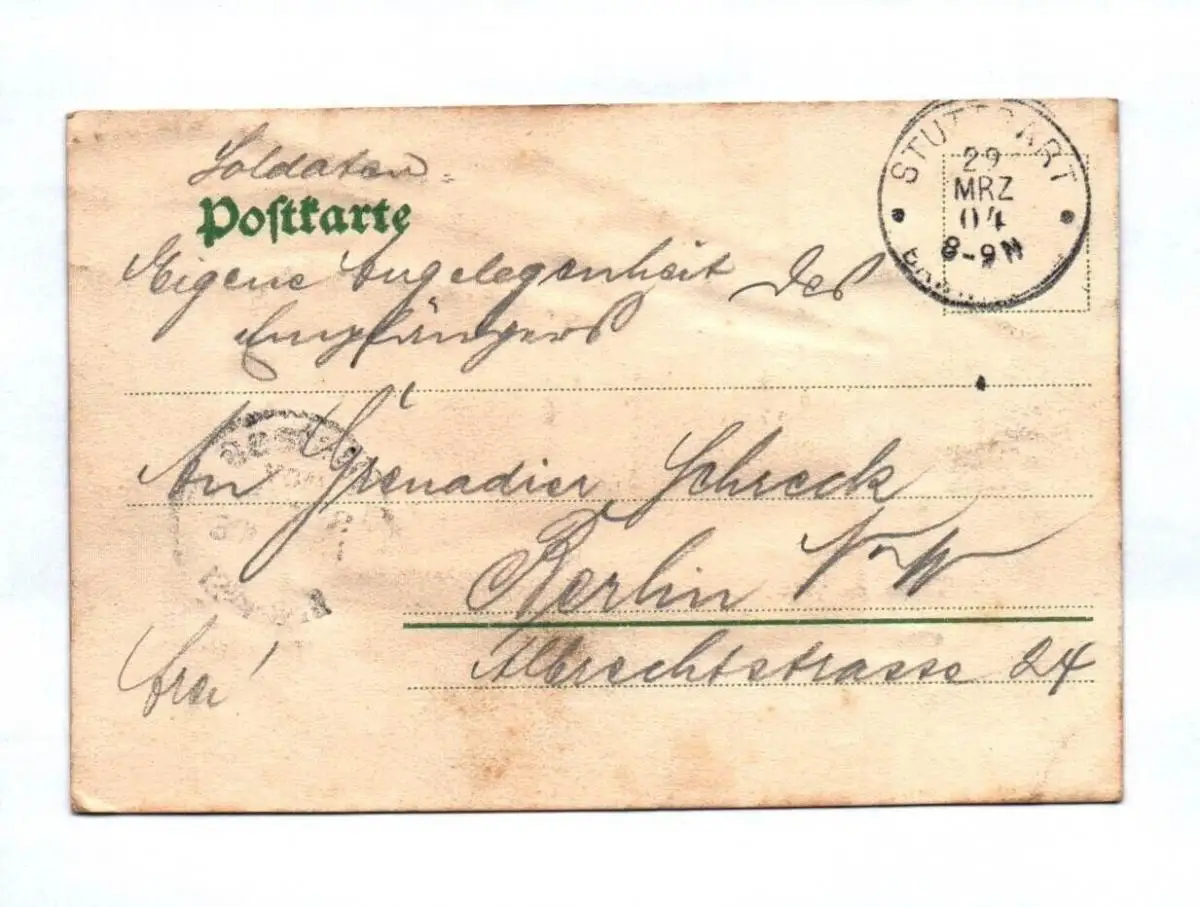 Soldaten=
Postkarte
Eigene Angelegenheit des
Empfängers
STUTTGART
29
MRZ
04
8-9 N
An Grenadier Schreck
Berlin N-W
Albrechtstrasse 24
frei!